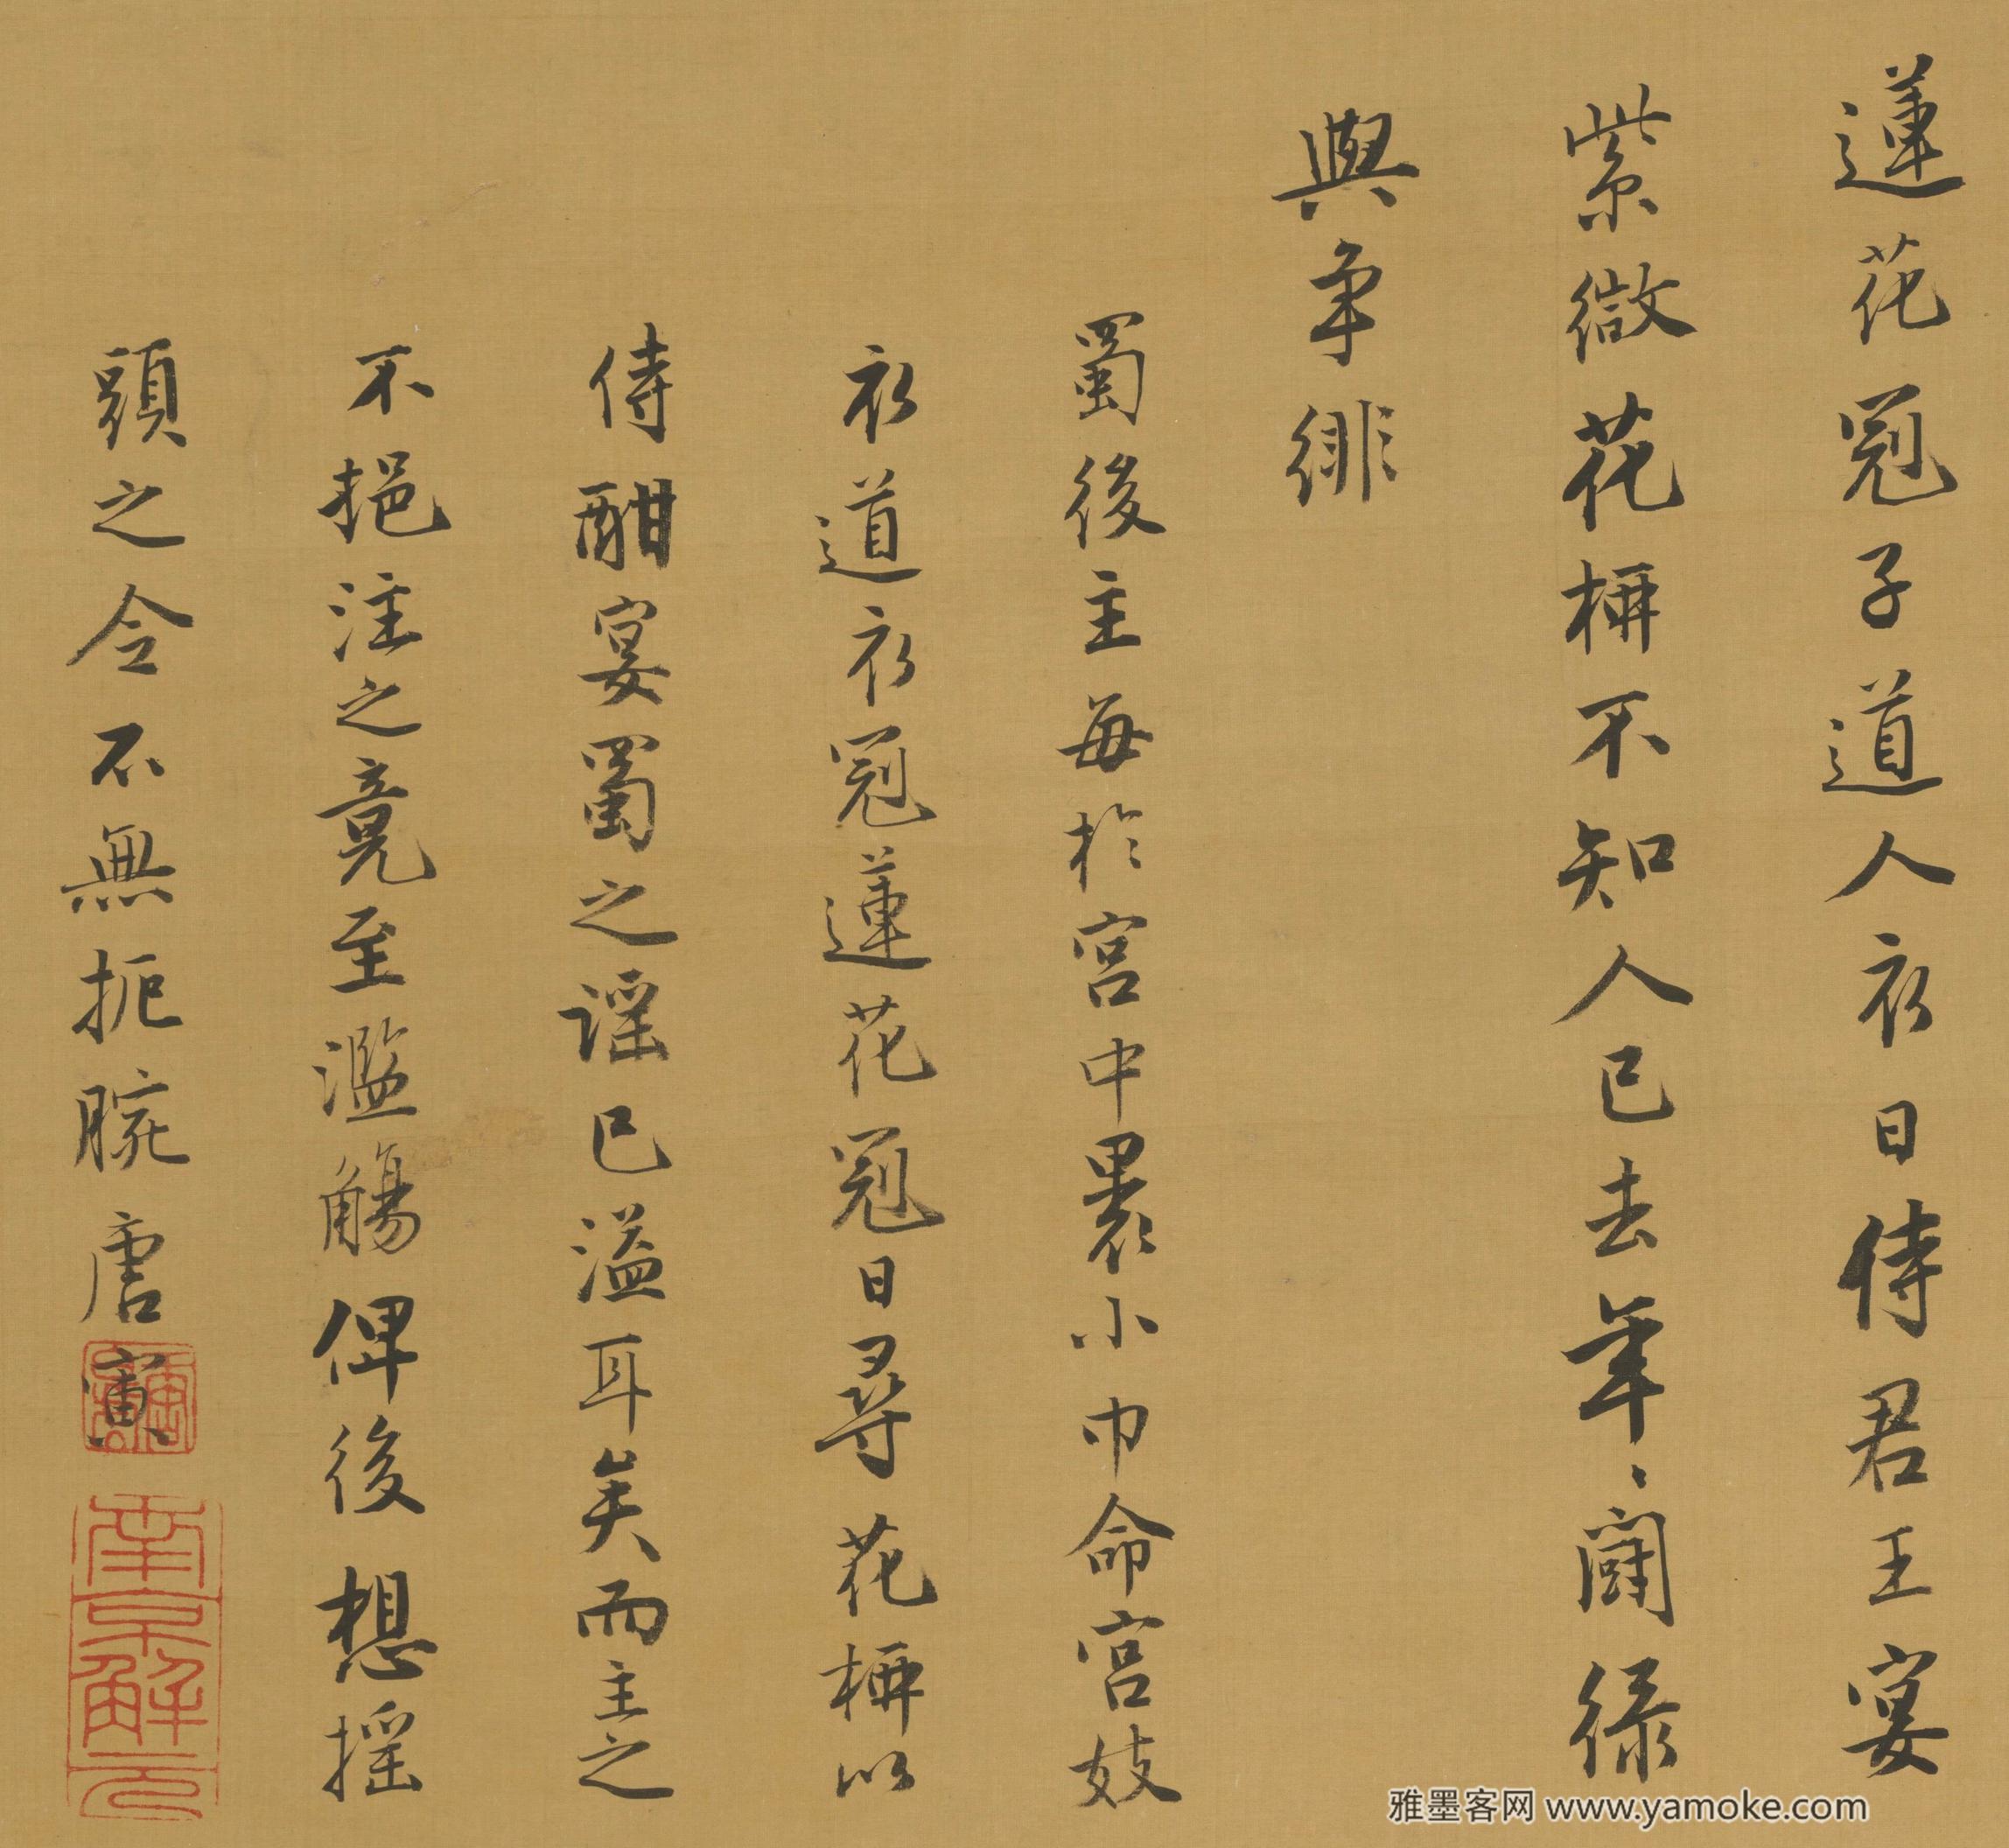 蓮花冠子道人衣日侍君王宴
紫微花柳不知人已去年〻鬪緑
與爭緋
蜀後主每於宮中裹小巾命宮妓
衣道衣冠蓮花冠日尋花柳以
侍酣宴蜀之謡已溢耳矣而主之
不挹注之竟至濫觴俾後想摇
頭之令不無扼腕唐寅
南京解元
雅墨客网 www.yamoke.com